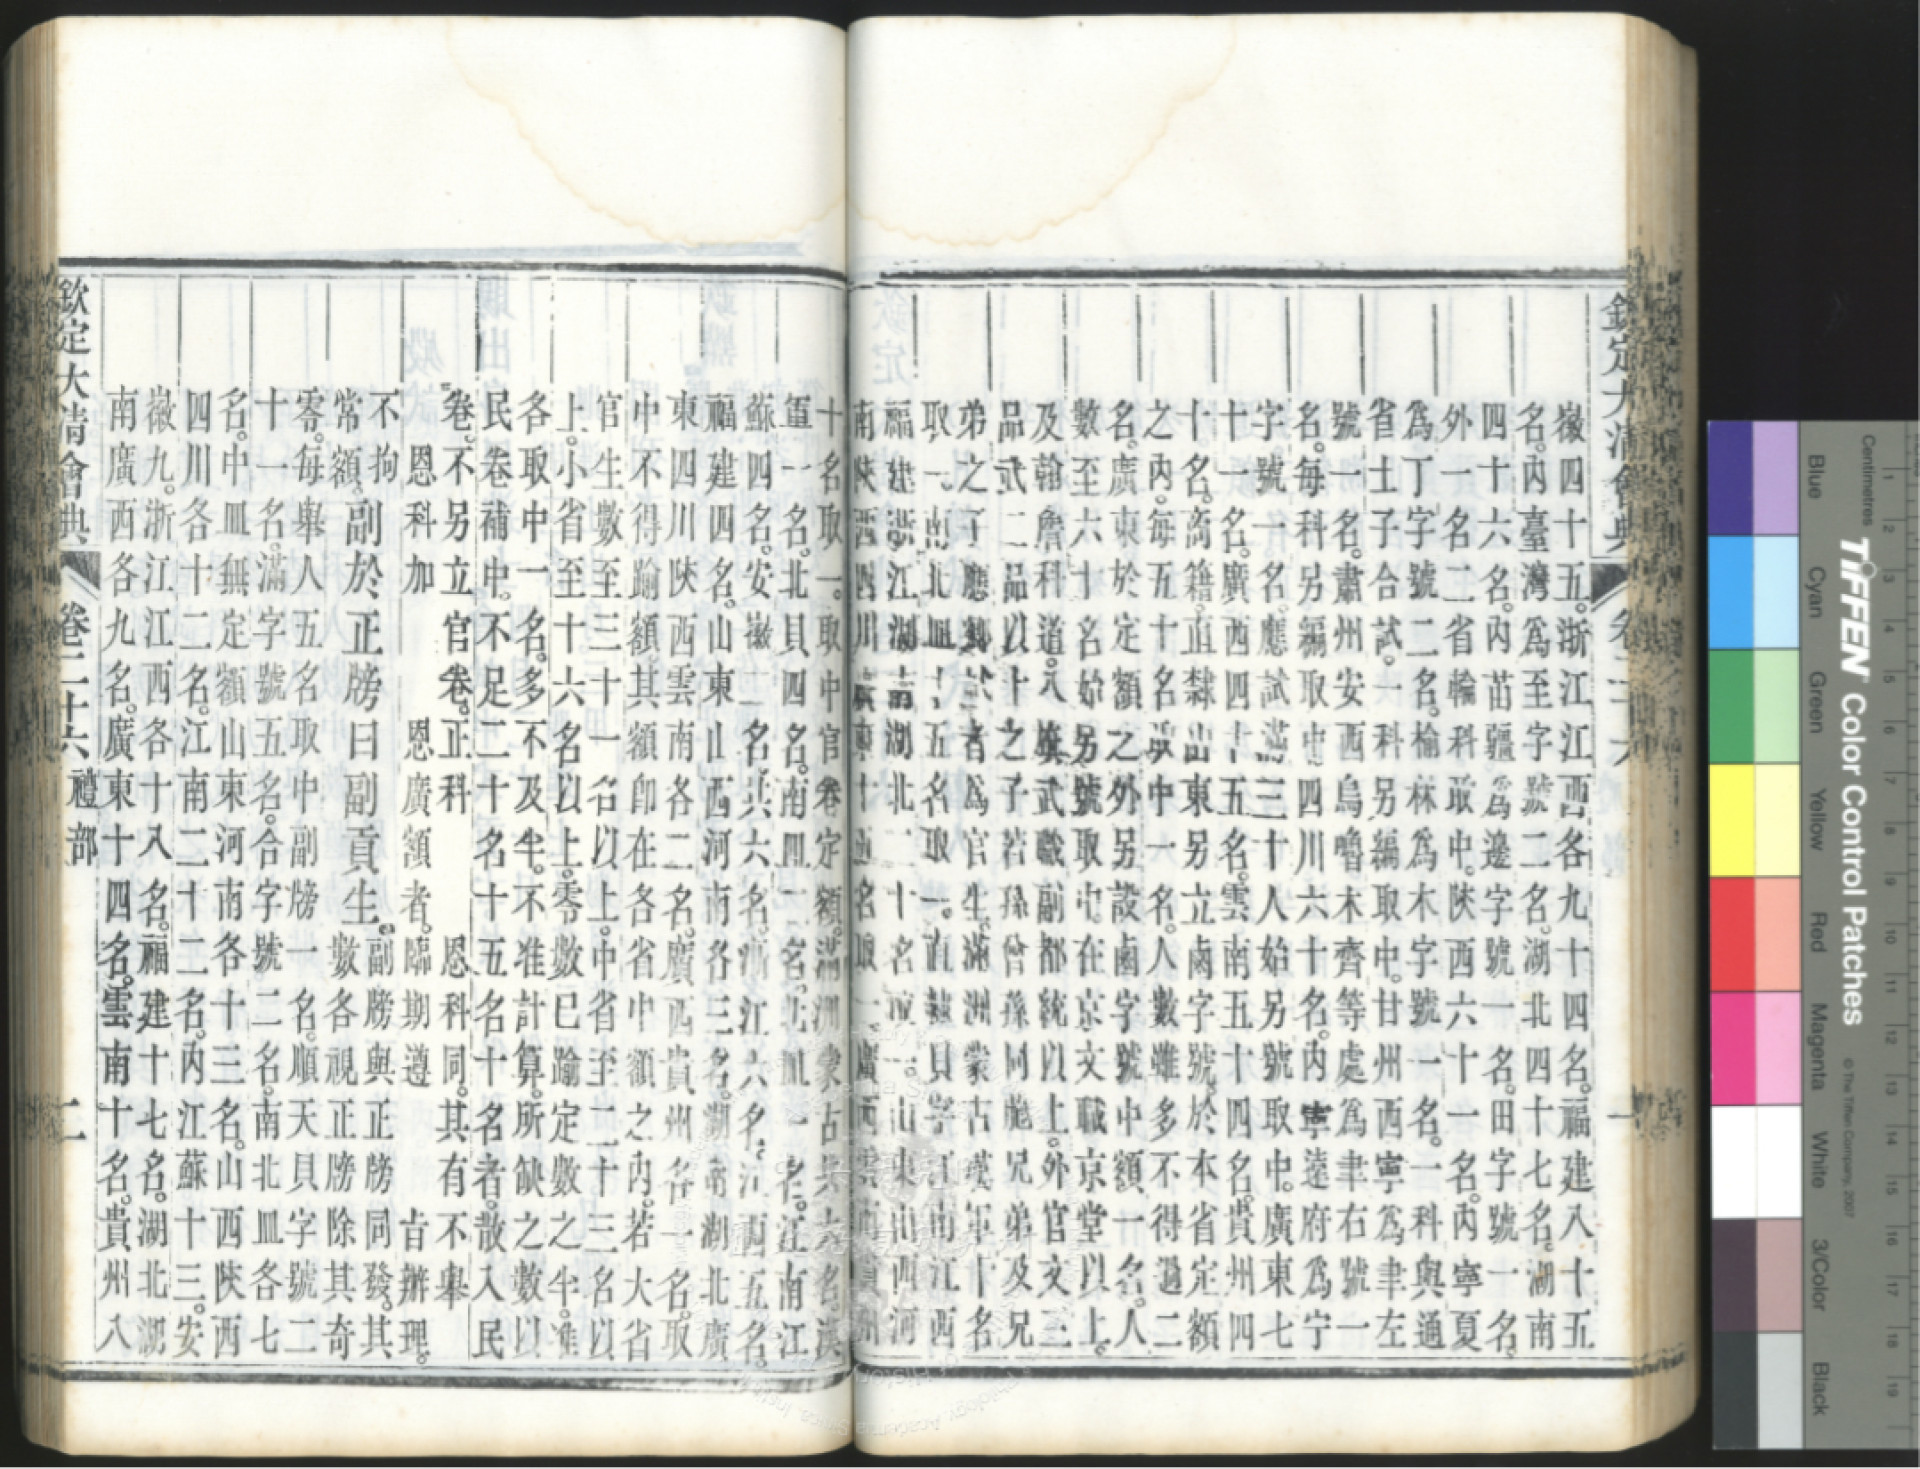 欽定大清會典 卷二十六 一
徽四十五。浙江江西各九十四名。福建八十五
名。內臺灣為至字號二名。湖北四十七名。湖南
四十六名。內苗疆為邊字號一名。田字號一名。
外一名二省輪科取中。陝西六十一名。內寧夏
為丁字號二名。榆林為木字號一名。一科與通
省士子合試。一科另編取中。甘州西寧為聿左
號一名。肅州安西烏嚕木齊等處為聿右號一
名。每科另編取中四川六十名。內寧遠府為宁
字號一名。應試滿三十人始另號取中。廣東七
十一名。廣西四十五名。雲南五十四名。貴州四
十名。商籍。直隸山東另立鹵字號。於本省定額
之內。每五十名取中一名。人數雖多不得過二
名。廣東於定額之外另設鹵字號中額一名。人
數至六十名始另號取中。在京文職京堂以上。
及翰詹科道。八旗武職副都統以上。外官文三
品武二品以上之子若孫曾孫同胞兄弟及兄
弟之子應鄉試者為官生。滿洲蒙古漢軍十名
取一。南北皿十五名取一。直隸貝字江南江西
福建浙江湖南湖北二十名取一。山東山西河
南陝西四川廣東十五名取一。廣西雲南貴州
十名取一。取中官卷定額。滿洲蒙古共六名。漢
軍一名。北貝四名。南皿二名。北皿一名。江南江
蘇四名。安徽二名共六名。浙江六名。江西五名。
福建四名。山東山西河南各三名。湖南湖北廣
東四川陝西雲南各二名。廣西貴州各一名。取
中不得踰額。其額即在各省中額之內。若大省
官生數至三十一名以上。中省至二十三名以
上。小省至十六名以上。零數已踰定數之半。准
各取中一名。多不及半。不准計算。所缺之數以
民卷補中。不足二十名十五名十名者。散入民
卷。不另立官卷。正科 恩科同。其有不舉
恩科加 恩廣額者。臨期遵 旨辦理。
不拘
常額。副於正牓曰副貢生。副牓與正牓同發。其
數各視正牓除其奇
零。每舉人五名取中副牓一名。順天貝字號二
十一名。滿字號五名。合字號二名。南北皿各七
名。中皿無定額山東河南各十三名。山西陝西
四川各十二名。江南二十二名。內江蘇十三。安
徽九。浙江江西各十八名。福建十七名。湖北湖
南廣西各九名。廣東十四名。雲南十名。貴州八
欽定大清會典 卷二十六 禮部 二
TIFFEN Color Control Patches
© The Tiffen Company, 2007
Centimetres
Blue
Cyan
Green
Yellow
Red
Magenta
White
3/Color
Black